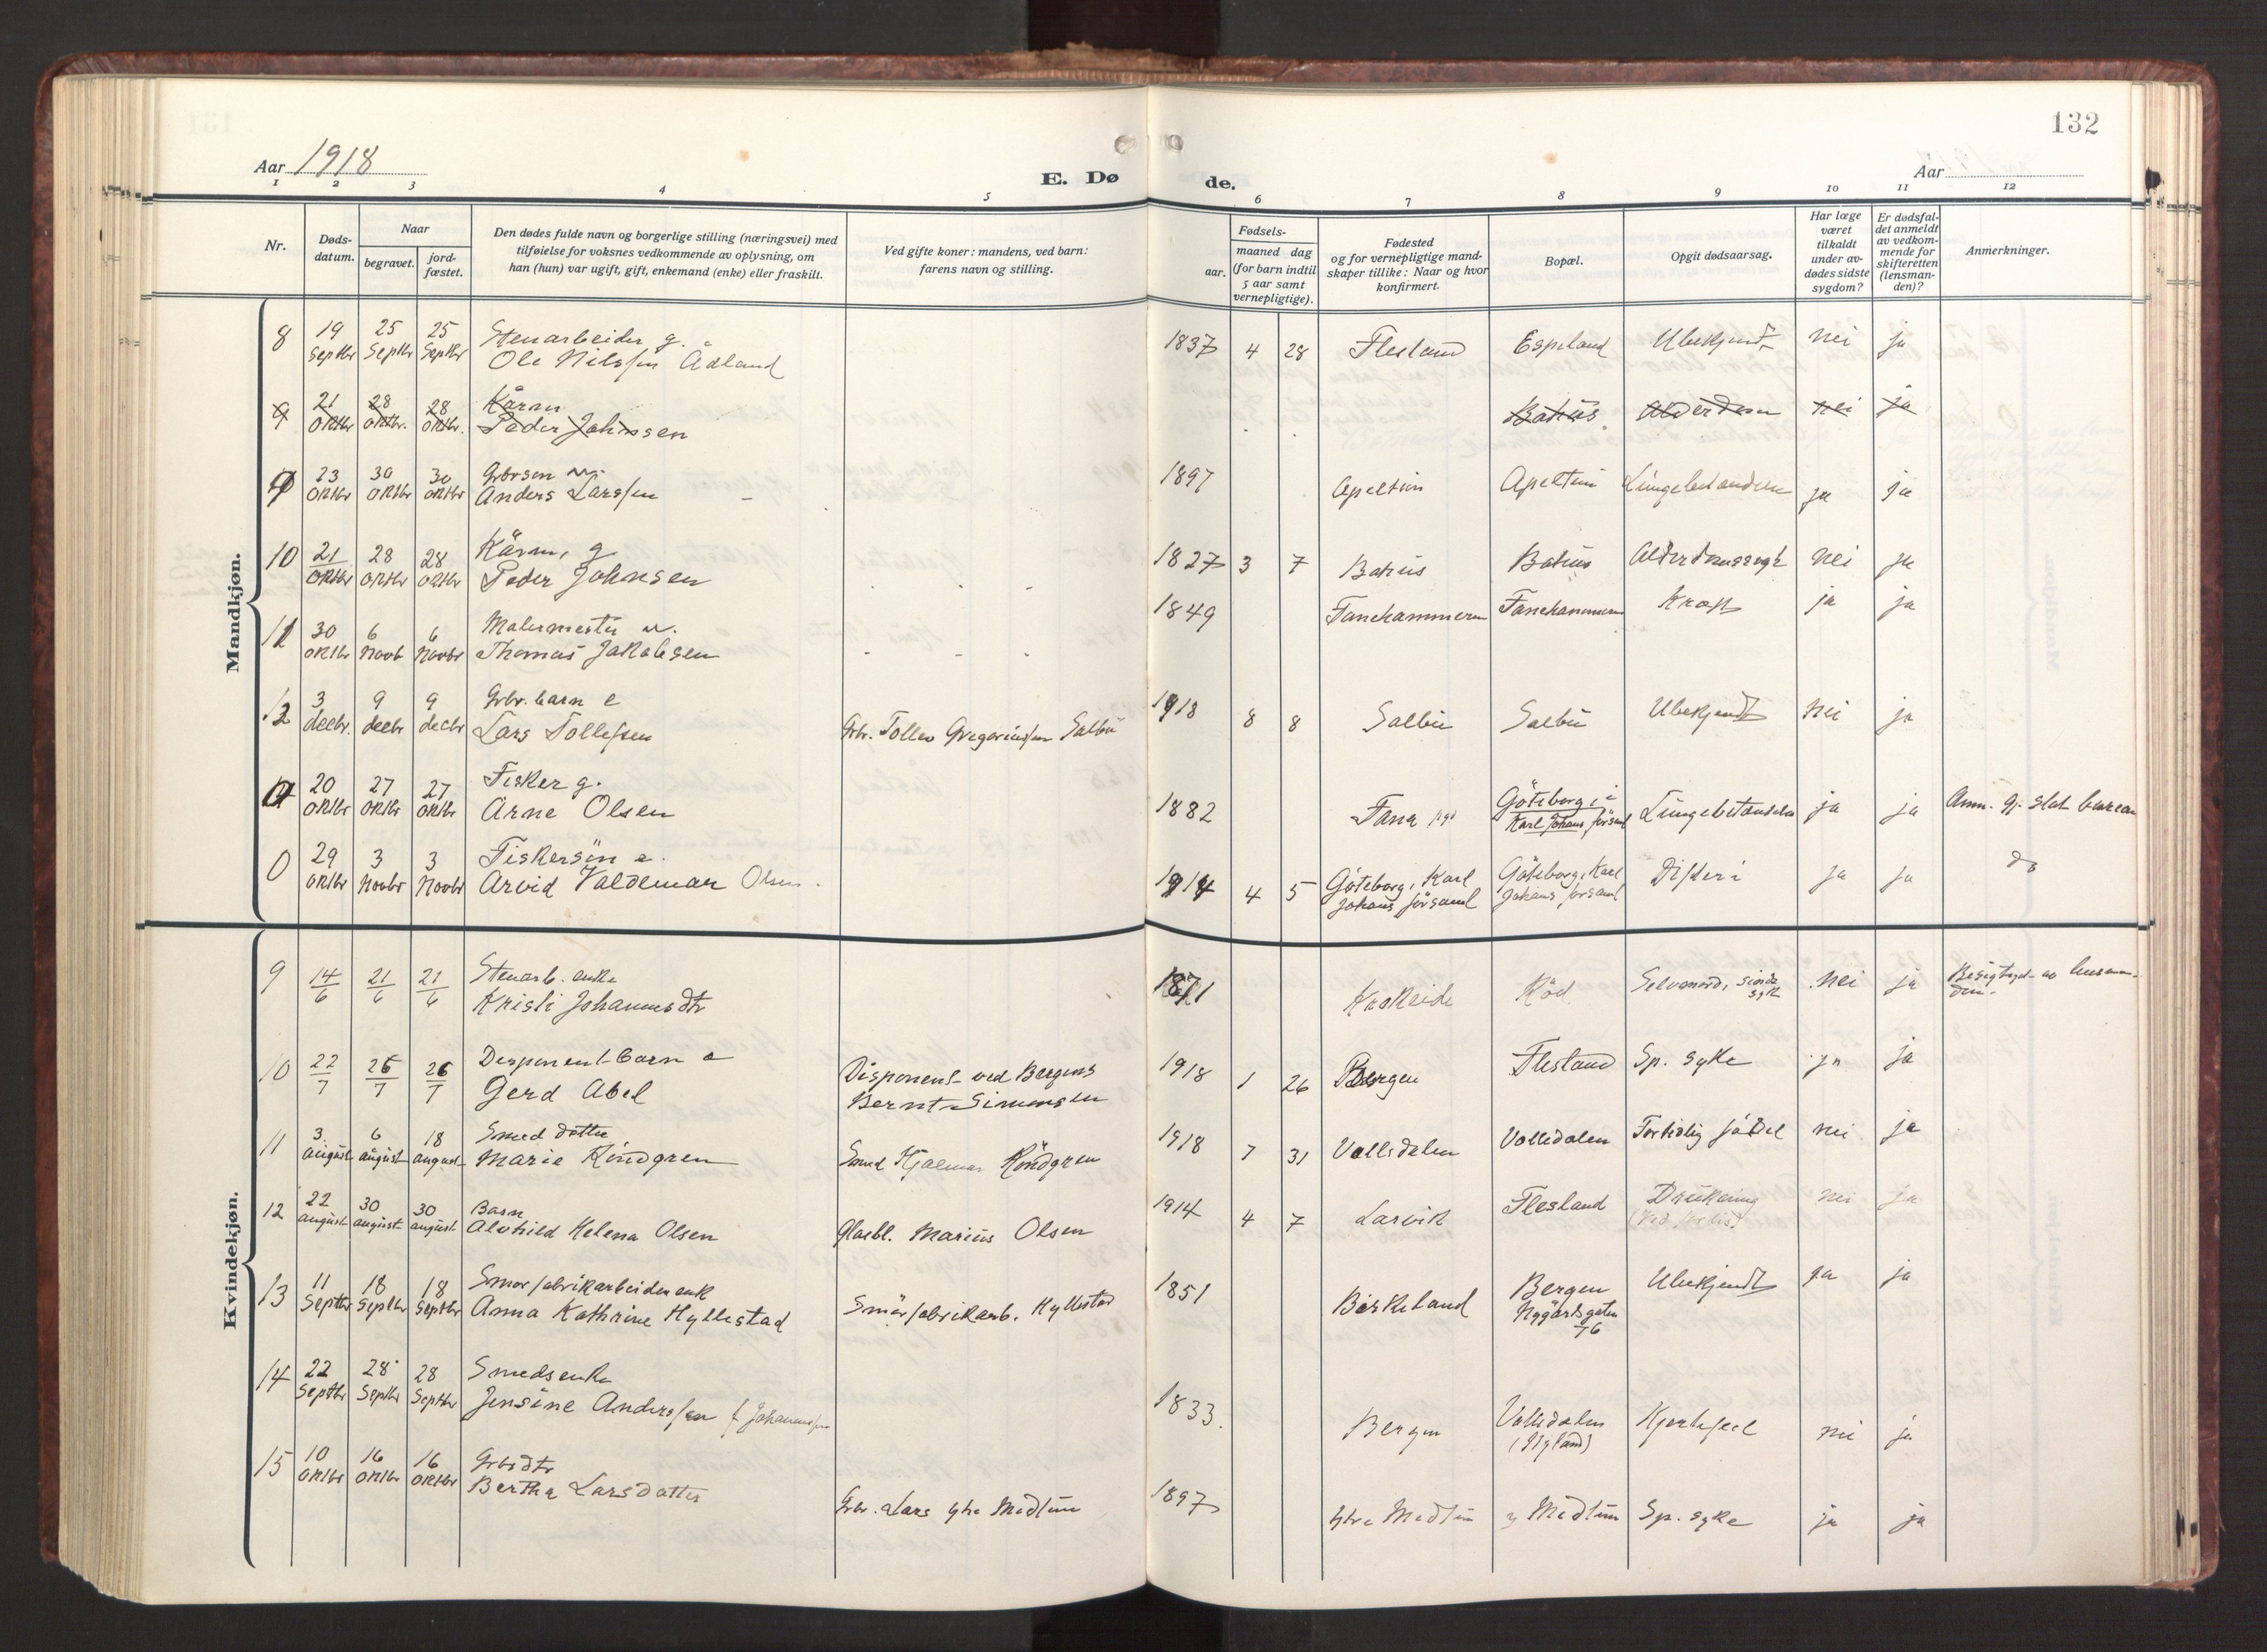 132
Aar 1918
E. Dø
de.
Aar
1 2 3 4 5 6 7 8 9 10 11 12
Nr.
Døds-
datum.
Naar
begravet.
jord-
fæstet.
Den dødes fulde navn og borgerlige stilling (næringsvei) med
tilføielse for voksnes vedkommende av oplysning, om
han (hun) var ugift, gift, enkemand (enke) eller fraskilt.
Ved gifte koner: mandens, ved barn:
farens navn og stilling.
Fødsels-
aar.
maaned dag
(for barn indtil
5 aar samt
vernepligtige).
Fødested
og for vernepligtige mand-
skaper tillike: Naar og hvor
konfirmert.
Bopæl.
Opgit dødsaarsag.
Har læge
været
tilkaldt
under av-
dødes sidste
sygdom?
Er dødsfal-
det anmeldt
av vedkom-
mende for
skifteretten
(lensman-
den)?
Anmerkninger.
Mandkjøn.
8 19 Septbr 25 Septbr 25 Septbr Stenarbeider g.
Ole Nilssen Ådland 1837 4 28 Flesland Espeland Ubekjendt nei ja
9 21 Oktbr 28 Oktbr. 28 Oktbr. Kårm
Peder Johnssen Båhus Alderdom nei ja
9 23 Oktbr 30 Oktbr 30 Oktbr Gbrsøn
Anders Larssen 1897 Apeltun Apeltun Lungebetændelse ja ja
10 21 Oktbr 28 Oktbr 28 Oktbr Kårm, g
Peder Johnsen 1827 3 7 nei ja
11 30 Oktbr 6 Novb 6 Novbr Malermester
Thomas Jakobsen 1849 Fanehammeren Fanehammeren Kræft ja ja
12 3 decbr. 9 decbr 9 decbr Grbr. barn e
Lars Tollefsen Grbr. Tollev Gregoriussen Salbu 1918 8 8 Salbu Salbu Ubekjendt nei ja
0 20 Oktbr 27 Oktbr 27 Oktbr Fisker g.
Arne Olsen 1882 Fana Göteborg, i
Karl Johans församl Lungebetændelse ja ja Anm. gj. stat. bureau
0 29 Oktbr 3 Novbr 3 Novbr Fiskersön e.
Arvid Valdemar Olsen. 1914 4 5 Göteborg, Karl
Johans församl Göteborg, Karl
Johans församl Difteri ja ja do
Kvindekjøn.
9 14/6 21/6 21/6 Stenarb. enke
Kristi Johannesdtr 1871 Krokeide Röd Selvmord, sinds
syk nei ja
10 22/7 26/7 26/7 Disponent-barn e
Gerd Abel Disponent ved Bergens
Bernt Simonsen 1918 1 26 Bergen Flesland Sp. syke ja ja
11 3 august 6 august 18 august Smed datter
Marie Kindgren Smed Hjalmar Kindgren 1918 7 31 Vallsdalen Vallsdalen Fortidlig födsel nei ja
12 22 august 30 august 30 august Barn
Alvhild Helena Olsen Marius Olsen 1914 4 7 Larvik Flesland Drukning nei ja
13 11 Septbr 18 Septbr 18 Septbr Smørfabrikarbeiderenk
Anna Kathrine Hyllestad Smørfabrikarb. Hyllestad 1851 Birkeland Bergen
Nygårdsgaten
76 Ubekjendt ja ja
14 22 Septbr 28 Septbr 28 Septbr Smedsenke
Jensine Anderssen f. Johannessen 1833. Bergen Vallsdalen Hjertefeil nei ja
15 10 Oktbr 16 Oktbr 16 Oktbr Grbrdtr
Bertha Larsdatter Grbr. Lars ytre Midtun 1897 Ytre Midtun y Midtun Sp. syke ja ja